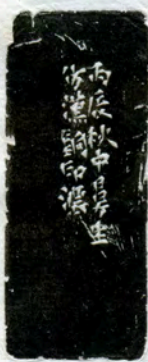 丙辰秋中曼生
仿漢銅印灋